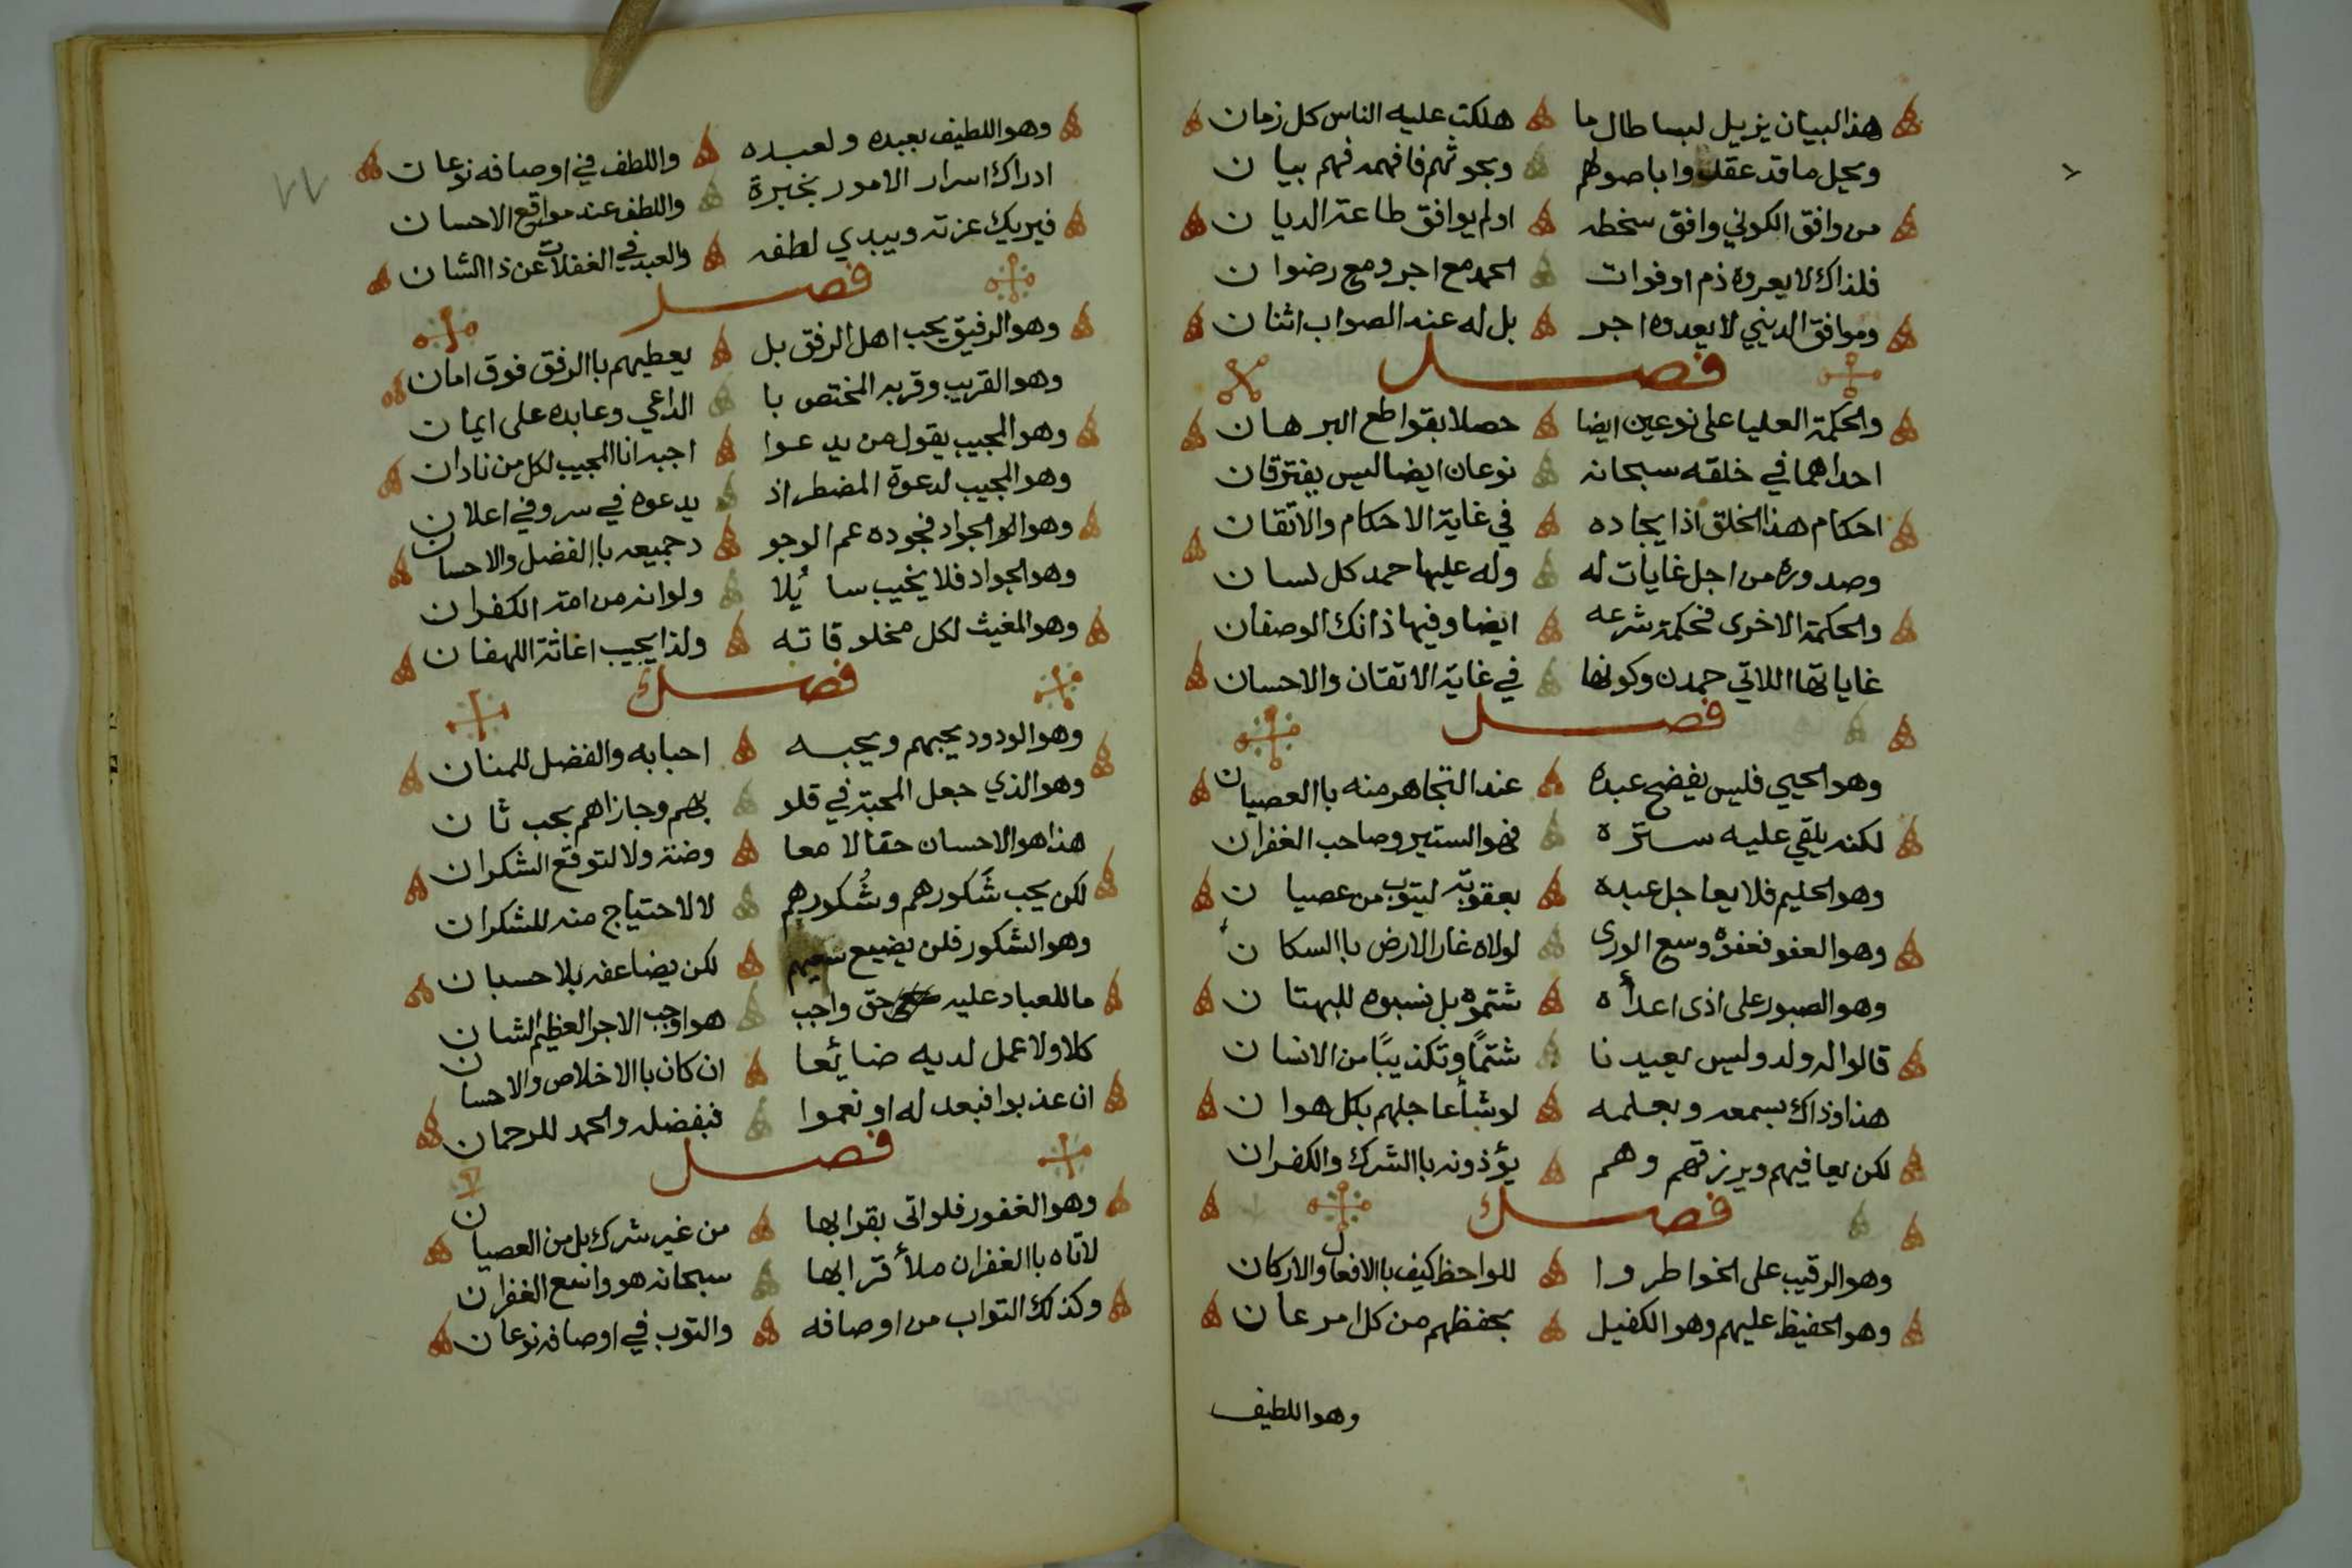 هذا البيان يزيل لبسا طال ما هلكت عليه الناس كل زمان
ويحل ما قد عقدوا باصولهم وبحوثهم فافهمه فهم بيان
من وافق الكوني وافق سخطه اولم يوافق طاعة الديان
فلذاك لا يعروه ذم او فوات الحمد مع اجر ومع رضوان
وموافق الديني لا يعدوه اجر بل له عند الصواب اثنان
فصل
والحكمة العليا على نوعين ايضا حصلا بقواطع البرهان
احداهما في خلقه سبحانه نوعان ايضا ليس يفترقان
احكام هذا الخلق اذ ايجاده في غاية الاحكام والاتقان
وصدوره من اجل غايات له وله عليها حمد كل لسان
والحكمة الاخرى فحكمة شرعه ايضا وفيها ذانك الوصفان
غاياتها اللاتي حمدن وكونها في غاية الاتقان والاحسان
فصل
وهو الحيي فليس يفضح عبده عند التجاهر منه باالعصيان
لكنه يلقي عليه ستره فهو الستير وصاحب الغفران
وهو الحليم فلا يعاجل عبده بعقوبة ليتوب من عصيان
وهو العفو فعفوه وسع الورى لولاه غار الارض باالسكان
وهو الصبور على اذى اعدائه شتموه بل نسبوه للبهتان
قالوا له ولد وليس يعيدنا شتمًا وتكذيبًا من الانسان
هذا وذاك بسمعه وبعلمه لو شأ عاجلهم بكل هوان
لكن يعافيهم ويرزقهم وهم يؤذونه باالشرك والكفران
فصل
وهو الرقيب على الخواطر وا للواحظ كيف باالافعال والاركان
وهو الحفيظ عليهم وهو الكفيل بحفظهم من كل امر عان
وهو اللطيف
وهو اللطيف بعبده ولعبده واللطف في اوصافه نوعان
ادراك اسرار الامور بخبرة واللطف عند مواقع الاحسان
فيريك عزته ويبدي لطفه والعبد في الغفلات عن ذا الشان
فصل
وهو الرفيق يحب اهل الرفق بل يعطيهم باالرفق فوق امان
وهو القريب وقربه المختص با الداعي وعابده على ايمان
وهو المجيب يقول من يدعوا اجبه انا المجيب لكل من نادان
وهو المجيب لدعوة المضطر اذ يدعوه في سر وفي اعلان
وهو الجواد فجوده عم الوجو د جميعه باالفضل والاحسان
وهو الجواد فلا يخيب سائلا ولو انه من امة الكفران
وهو المغيث لكل مخلوقاته ولذا يجيب اغاثة اللهفان
فصل
وهو الودود يحبهم ويحبه احبابه والفضل للمنان
وهو الذي جعل المحبة في قلو بهم وجازاهم بحب ثان
هذا هو الاحسان حقا لا معا وضة ولا لتوقع الشكران
لكن يحب شَكورهم وشُكورهم لا لاحتياج منه للشكران
وهو الشكور فلن يضيع سعيهم لكن يضاعفه بلا حسبان
ما للعباد عليه حق واجب هو اوجب الاجر العظيم الشان
كلا ولا عمل لديه ضائعا ان كان باالاخلاص والاحسان
ان عذبوا فبعدله او نعموا فبفضله والحمد للرحمان
فصل
وهو الغفور فلو اتى بقرابها من غير شرك بل من العصيان
لاتاه باالغفران ملأ قرابها سبحانه هو واسع الغفران
وكذلك التواب من اوصافه والتوب في اوصافه نوعان